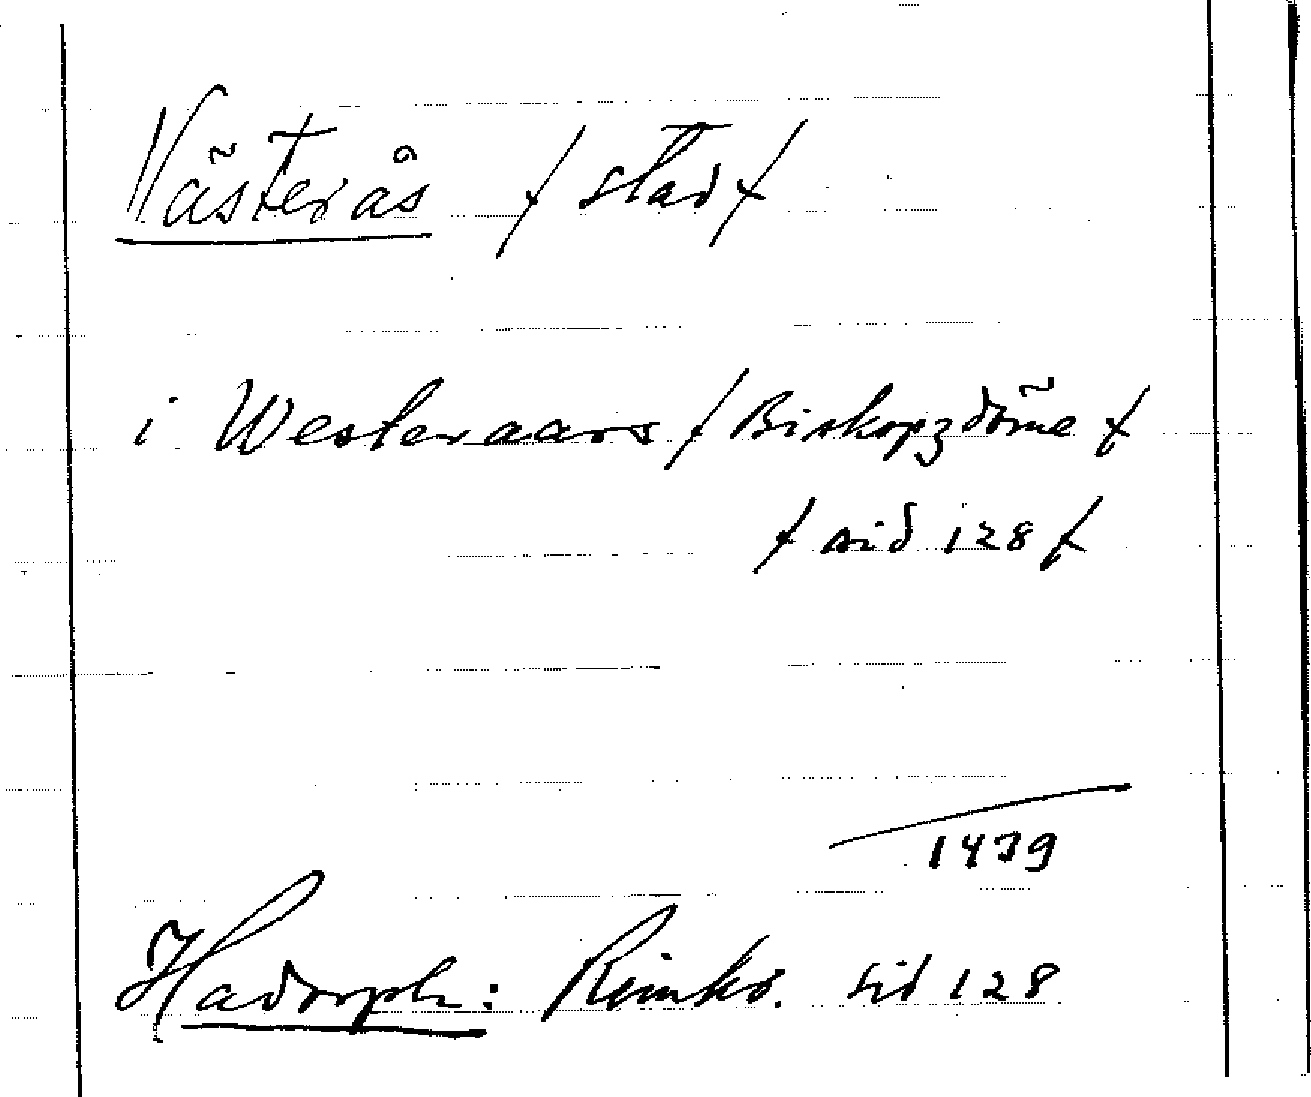 Västerås / stad /
i Westeraars / Biskopzdöme /
/ sid 128 /
1439
Hadorph: Rimkr. sid 128